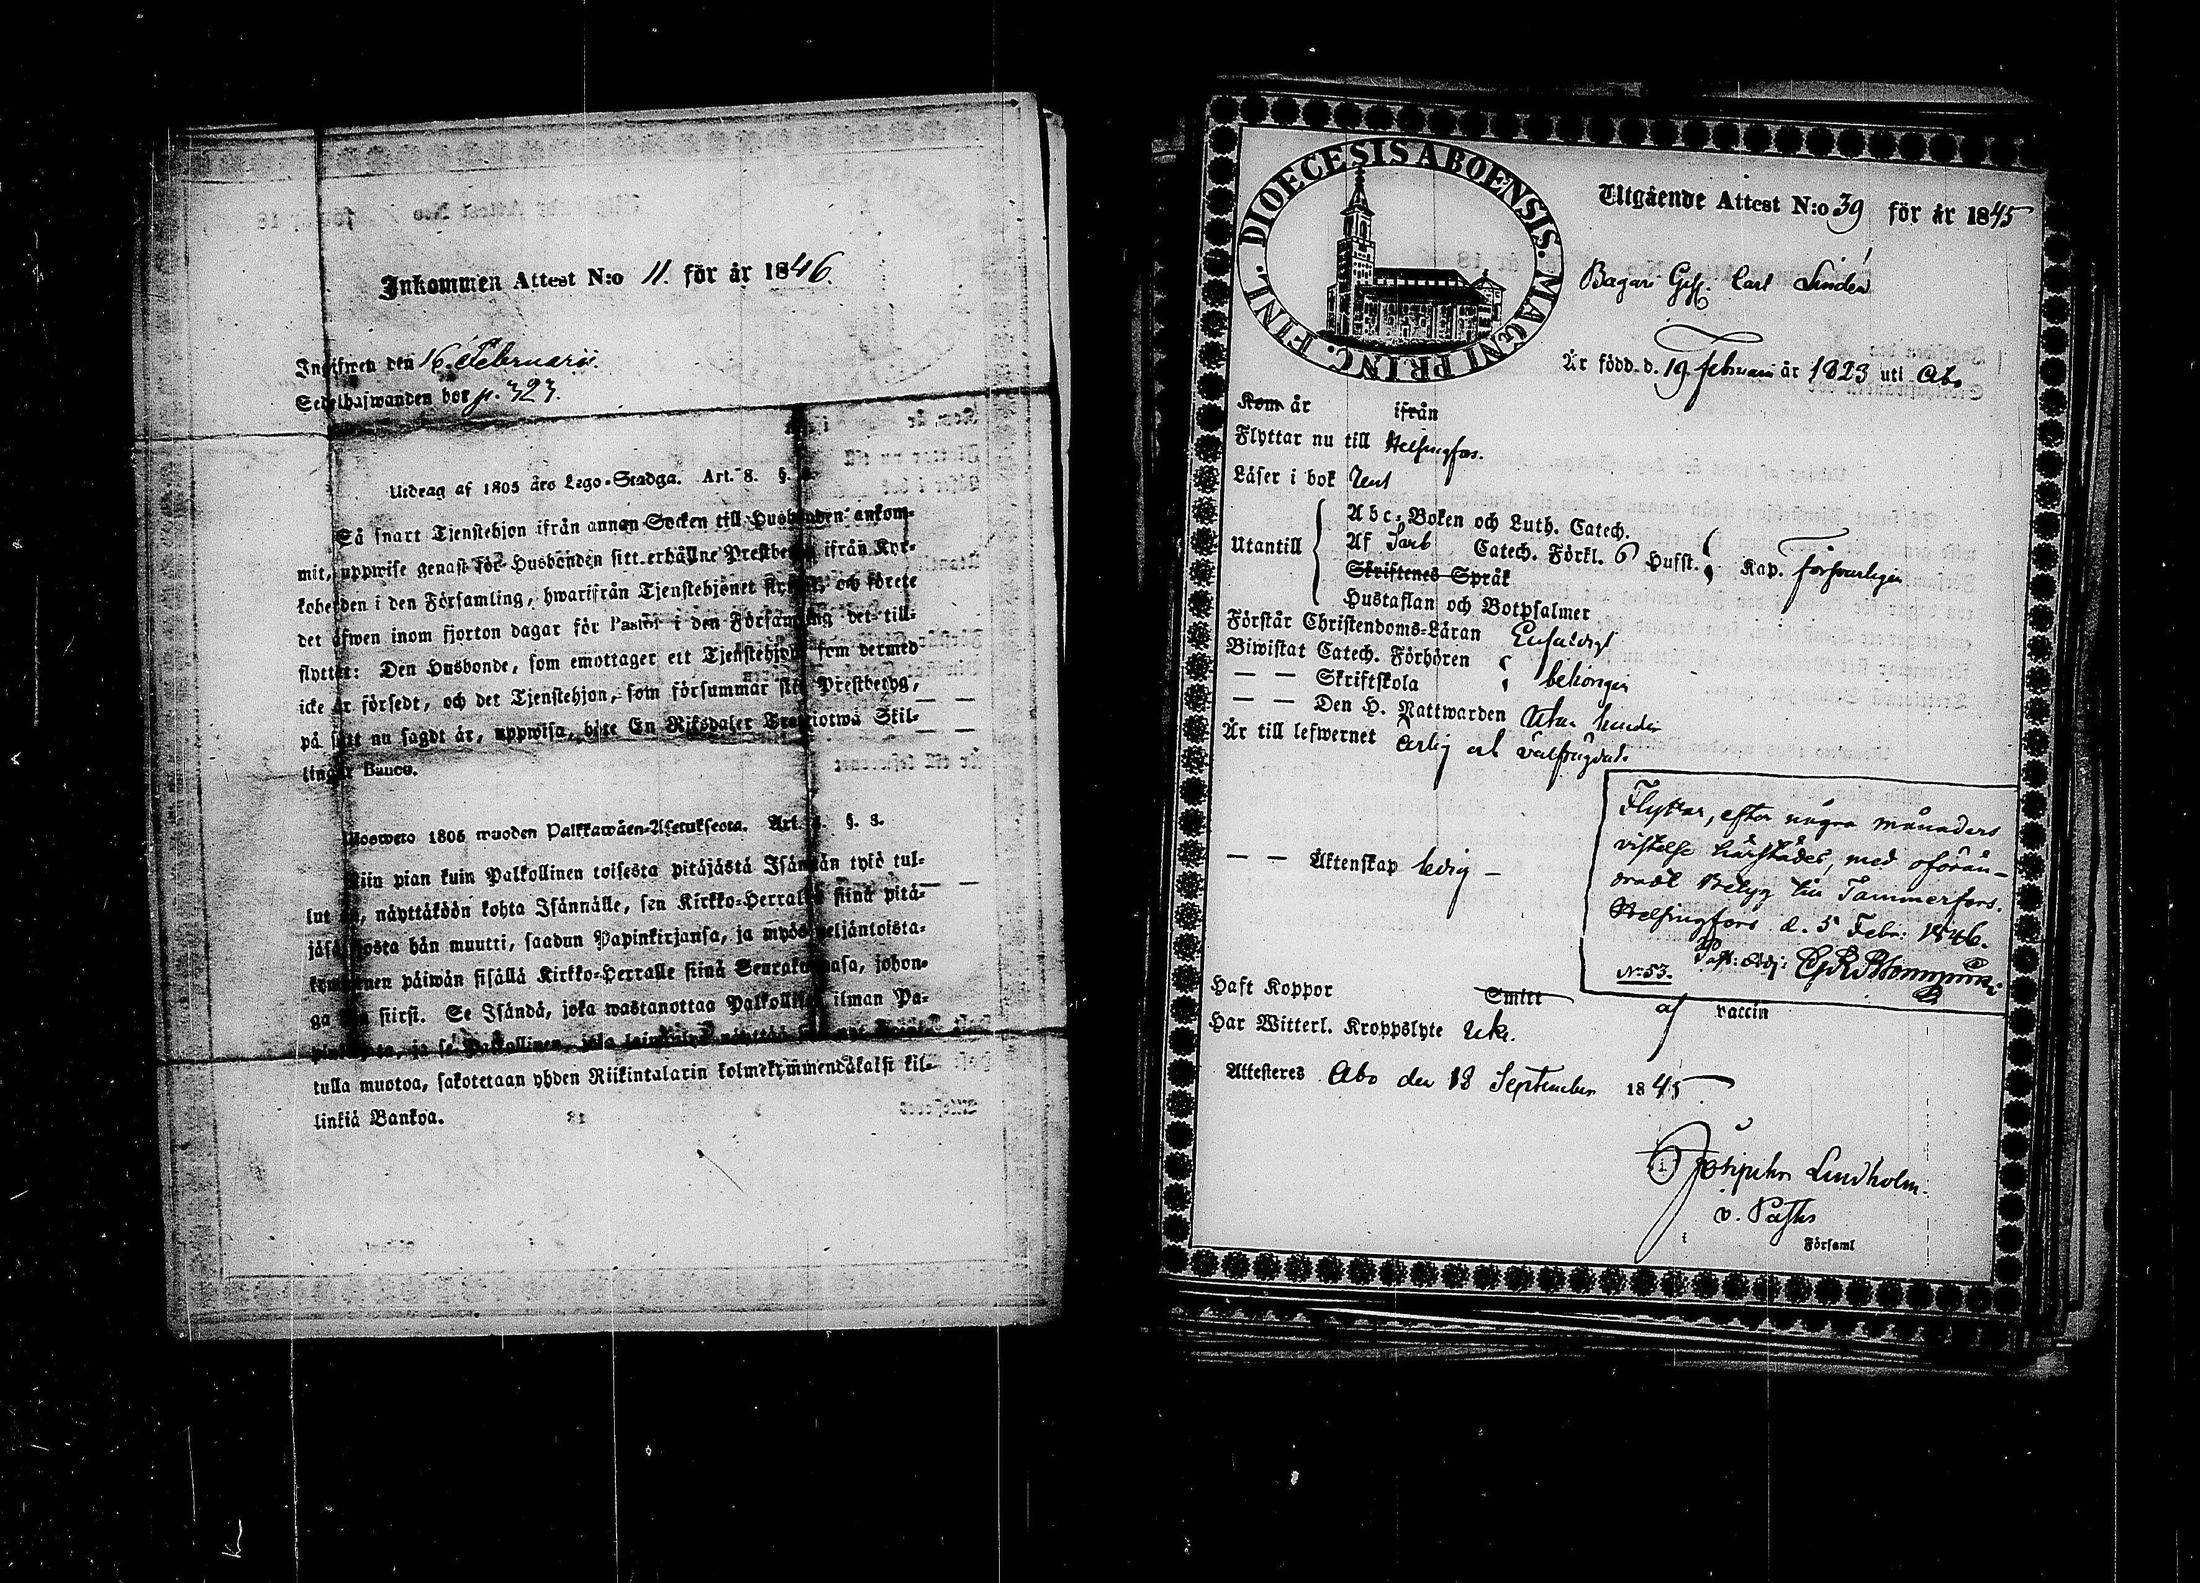 Inkommen Attest N:o 11. för år 1846.
Inskrifwen den 16. Februarii.
Sedelhafwanden bor p. 323.
Utdrag af 1805 års Lego-Stadga. Art. 8. §.
Så snart Tjenstehjon ifrån annan Socken till Husbonden ankom-
mit, uppwise genast för Husbonden sitt erhållne Prestbetyg ifrån Kyr-
koherden i den Församling, hwarifrån Tjenstehjonet och förete
det äfwen inom fjorton dagar för Pastor i den Församling det till-
flyttet: Den Husbonde, som emottager ett Tjenstehjon, som dermed
icke är försedt, och det Tjenstehjon, som försummar sitt Prestbetyg,
på sätt nu sagdt är, uppwisa, böte En Riksdaler Trettiotwå Skil-
lingar Banco.
1805 wuoden Palkkawäen-Asetuksesta. Art. §. 3.
Niin pian kuin Palkollinen toisesta pitäjästä Isännän työ tul-
lut on, näyttäköön kohta Isännälle, sen Kirkko-Herralta siinä pitä-
jäsä, josta hän muutti, saadun Papinkirjansa, ja myös neljäntoista-
kymmenen päiwän sisällä Kirkko-Herralle siinä Seurakunnasa, johon-
ga hän siirsi. Se Isändä, joka wastanottaa Palkollisen ilman Pa-
ja se Palkollinen, joka
tulla muotoa, sakotetaan yhden Riikintalarin kolmekymmendäkaksi kil-
linkiä Bankoa.
DIOECESIS ABOENSIS. MAGNI PRINC. FINL.
Utgående Attest N:o 39 för år 1845
Bagare Ges. Carl Lindén
Är född d. 19 Februari år 1823 uti Åbo
Kom år ifrån
Flyttar nu till Helsingfors.
Läser i bok Rent
Utantill
Abc-Boken och Luth. Catech.
Af Sarb Catech. Förkl. 6 Hufst. Kap. försvarligen
Skriftenes Språk
Hustaflan och Botpsalmer
Förstår Christendoms-Läran Enfaldigt
Biwistat Catech. Förhören
— — Skriftskola behörigen
— — Den H. Nattwarden Utan hinder
Är till lefwernet Ärlig och välfrägdad.
— — Äktenskap ledig —
Flyttar, efter några månaders
vistelse härstädes, med oförän-
dradt Betyg till Tammerfors.
Helsingfors d. 5 Febr: 1846.
No 53.
Haft Koppor Smitt af vaccin
Har Witterl. Kroppslyte Utan.
Attesteres Åbo den 18 September 1845
Lindholm.
v. Pastor
i Församl